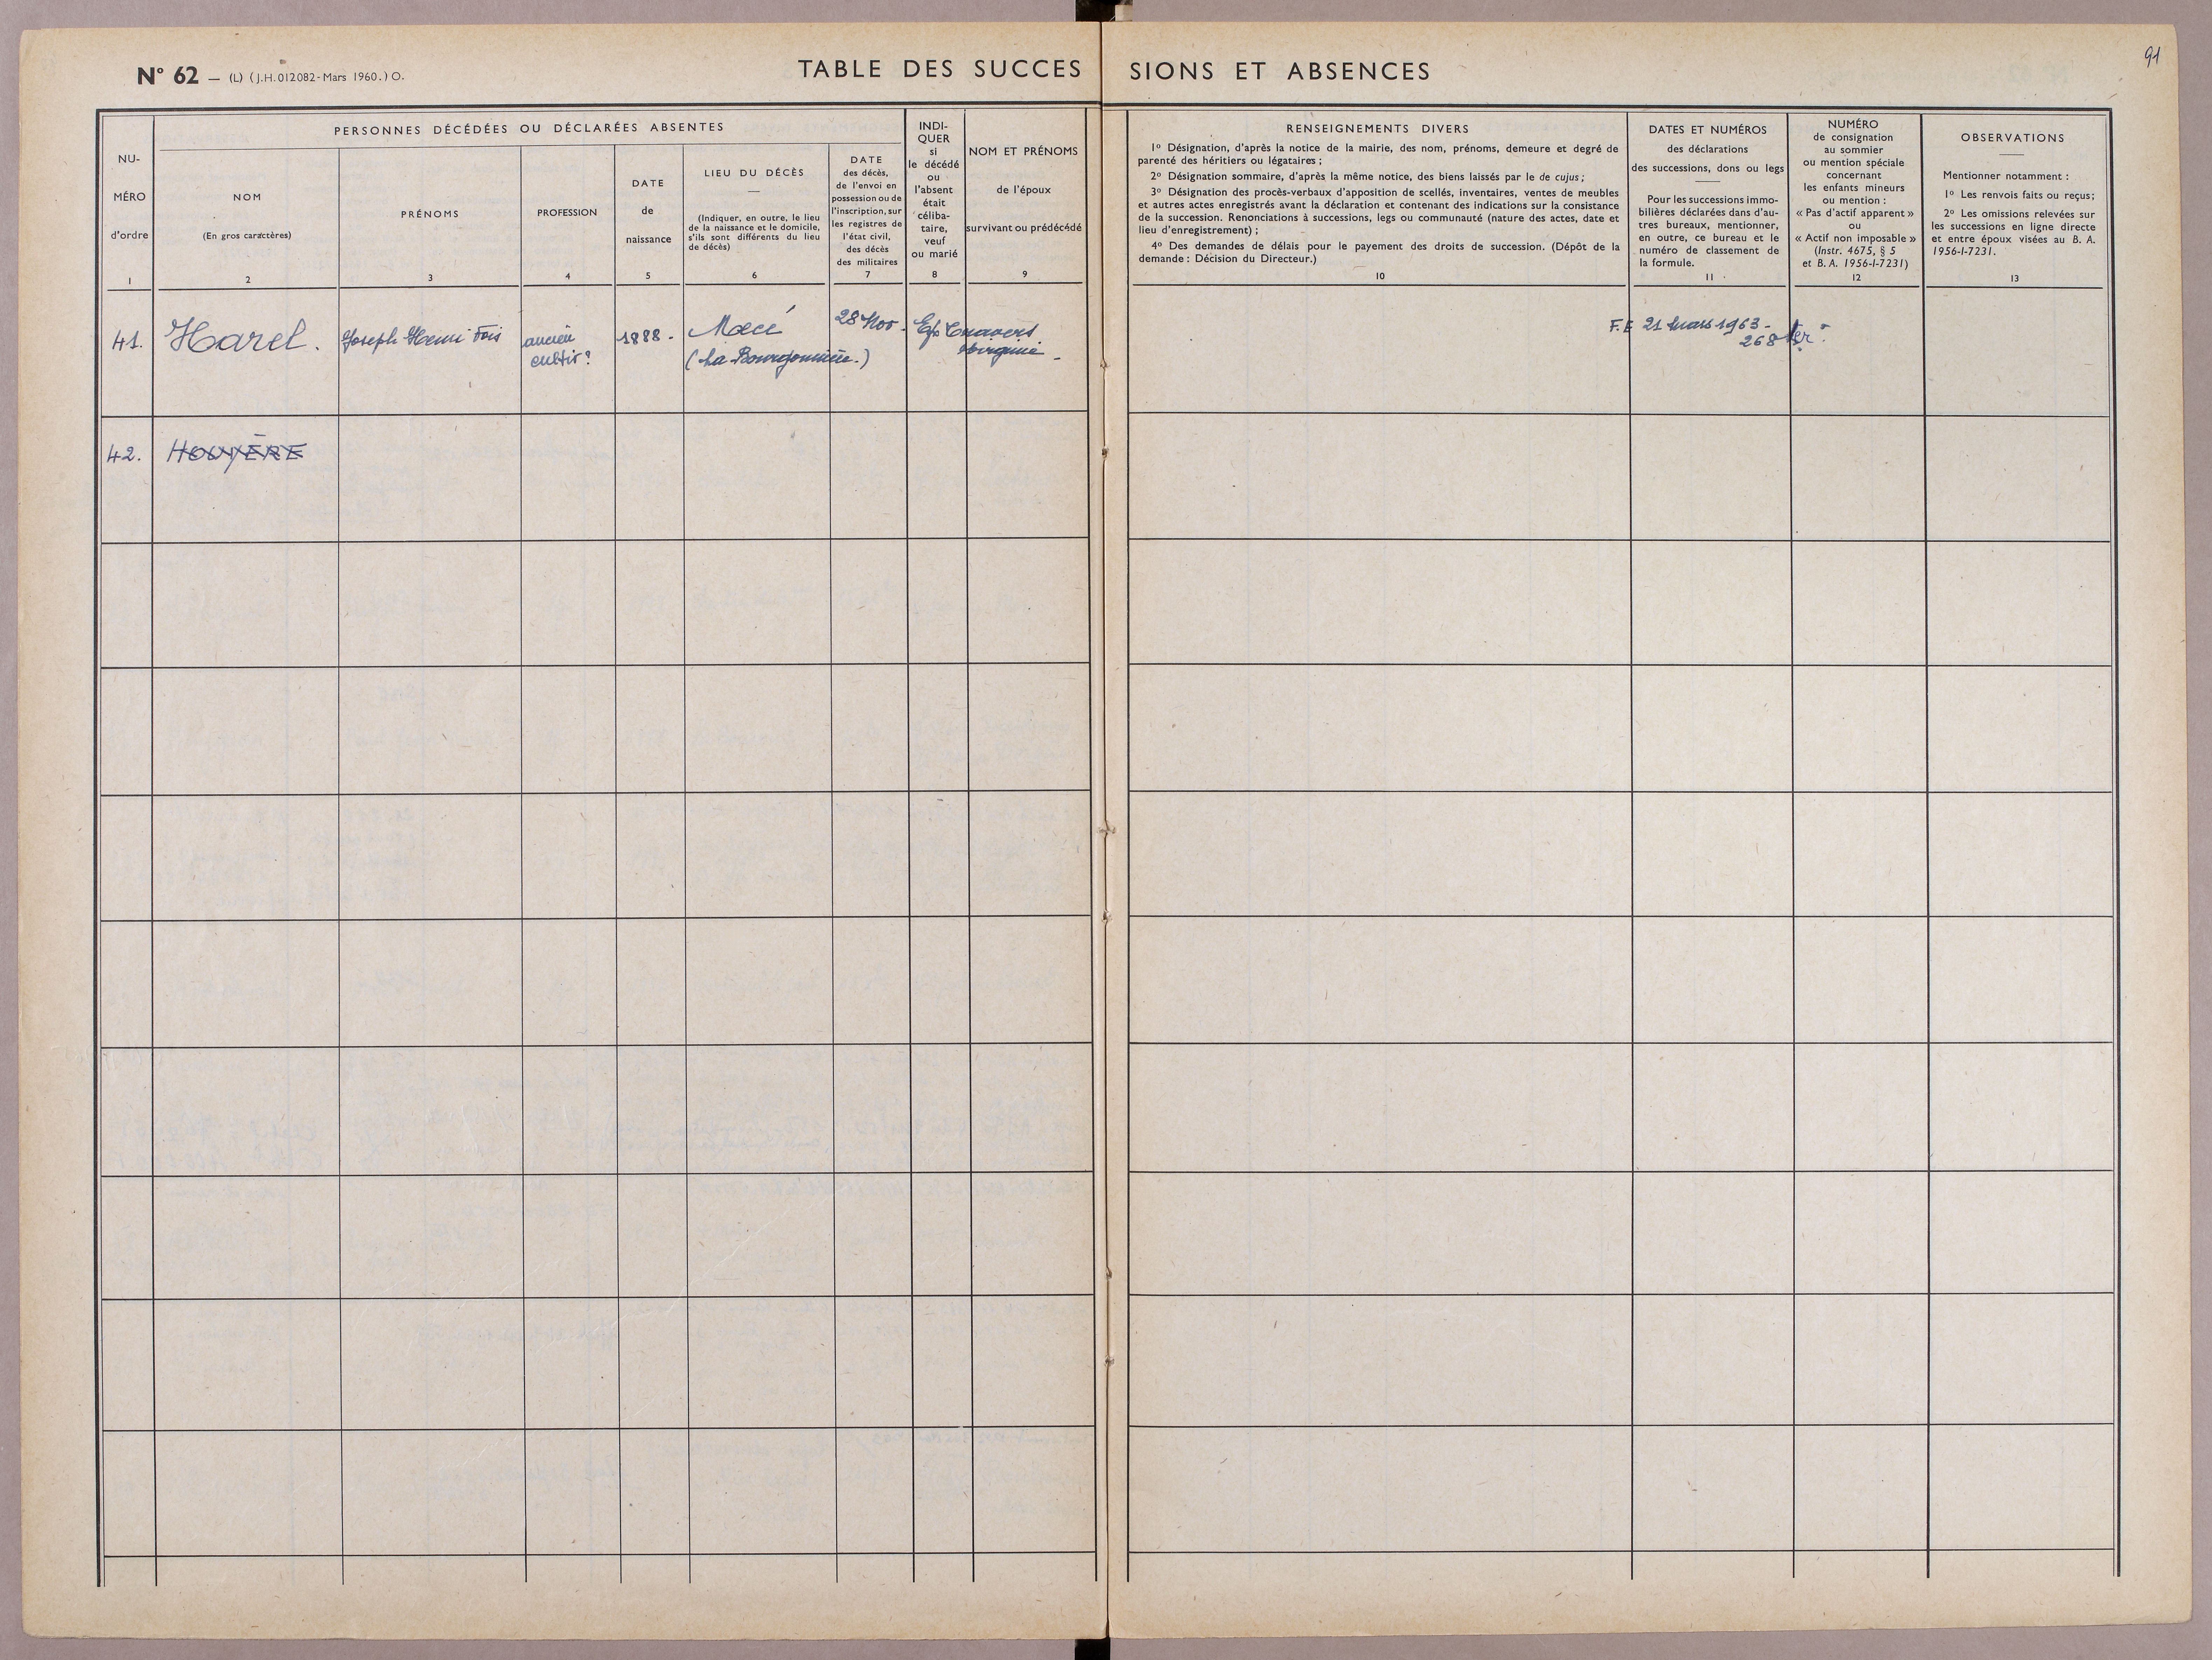 91
N° 62 — (L) (J.H. 012082 - Mars 1960.) O.
TABLE DES SUCCES
SIONS ET ABSENCES
NU-
MÉRO
d'ordre
1
PERSONNES DÉCÉDÉES OU DÉCLARÉES ABSENTES
NOM
(En gros caractères)
2
PRÉNOMS
3
PROFESSION
4
DATE
de
naissance
5
LIEU DU DÉCÈS
—
(Indiquer, en outre, le lieu
de la naissance et le domicile,
s'ils sont différents du lieu
de décès)
6
DATE
des décès,
de l'envoi en
possession ou de
l'inscription, sur
les registres de
l'état civil,
des décès
des militaires
7
INDI-
QUER
si
le décédé
ou
l'absent
était
céliba-
taire,
veuf
ou marié
8
NOM ET PRÉNOMS
de l'époux
survivant ou prédécédé
9
RENSEIGNEMENTS DIVERS
1° Désignation, d'après la notice de la mairie, des nom, prénoms, demeure et degré de
parenté des héritiers ou légataires ;
2° Désignation sommaire, d'après la même notice, des biens laissés par le de cujus ;
3° Désignation des procès-verbaux d'apposition de scellés, inventaires, ventes de meubles
et autres actes enregistrés avant la déclaration et contenant des indications sur la consistance
de la succession. Renonciations à successions, legs ou communauté (nature des actes, date et
lieu d'enregistrement) ;
4° Des demandes de délais pour le payement des droits de succession. (Dépôt de la
demande : Décision du Directeur.)
10
DATES ET NUMÉROS
des déclarations
des successions, dons ou legs
Pour les successions immo-
bilières déclarées dans d'au-
tres bureaux, mentionner,
en outre, ce bureau et le
numéro de classement de
la formule.
11
NUMÉRO
de consignation
au sommier
ou mention spéciale
concernant
les enfants mineurs
ou mention :
« Pas d'actif apparent »
ou
« Actif non imposable »
(Instr. 4675, § 5
et B. A. 1956-I-7231)
12
OBSERVATIONS
Mentionner notamment :
1° Les renvois faits ou reçus ;
2° Les omissions relevées sur
les successions en ligne directe
et entre époux visées au B. A.
1956-I-7231.
13
41.
Harel.
Joseph Henri Fois
ancien
cultivr
1888 -
Macé
(La Bourgonnière.)
28 Nov.
Ep
Virginie -
F.E 21 Mars 1963 -
268 ter.
42.
HOUYÈRE